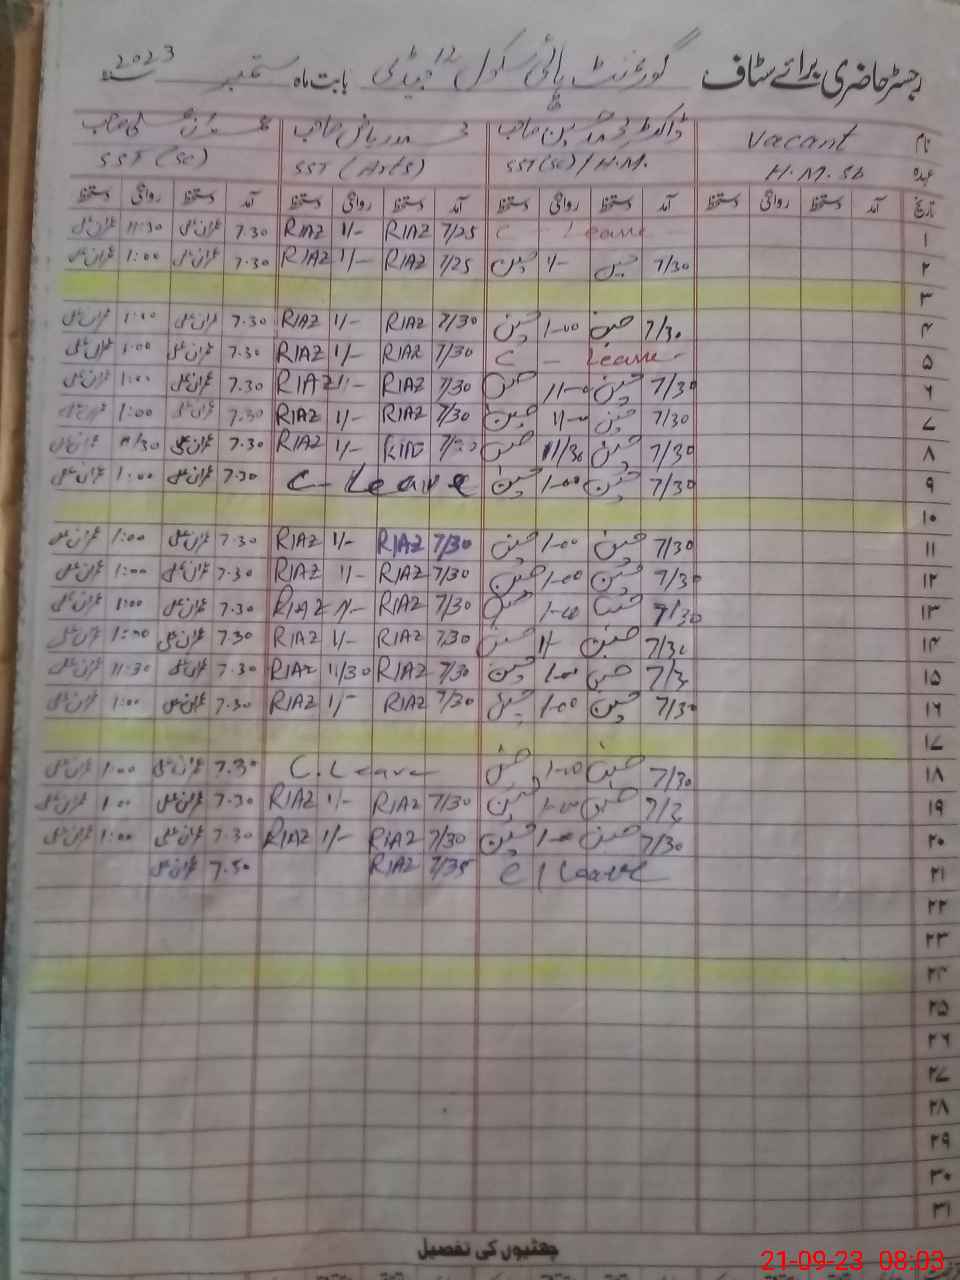 رجسٹر حاضری برائے سٹاف گورنمنٹ ہائی سکول 12 بابت ماہ ستمبر 2023
نام Vacant ڈاکٹر محمد حسین صاحب محمد ریاض صاحب عمران علی صاحب
عہدہ H.M. Sb SST(SC)/H.M. SST (Arts) SST (SC)
تاریخ آمد دستخط روانگی دستخط آمد دستخط روانگی دستخط آمد دستخط روانگی دستخط آمد دستخط روانگی دستخط
۱ C - Leave 7/25 RIAZ 1/- RIAZ 7.30 عمران علی 11:30 عمران علی
۲ 7/30 حسین 1/- حسین 7/25 RIAZ 1/- RIAZ 7.30 عمران علی 1:00 عمران علی
۳
۴ 7/30 حسین 1-00 حسین 7/30 RIAZ 1/- RIAZ 7.30 عمران علی 1:00 عمران علی
۵ C - Leave 7/30 RIAZ 1/- RIAZ 7.30 عمران علی 1:00 عمران علی
۶ 7/30 حسین 1-00 حسین 7/30 RIAZ 1/- RIAZ 7.30 عمران علی 1:00 عمران علی
۷ 7/30 حسین 1-00 حسین 7/30 RIAZ 1/- RIAZ 7.30 عمران علی 1:00 عمران علی
۸ 7/30 حسین 11/30 حسین RIAZ 1/- RIAZ 7.30 عمران علی 11/30 عمران علی
۹ 7/30 حسین 1-00 حسین C - Leave 7.30 عمران علی 1:00 عمران علی
۱۰
۱۱ 7/30 حسین 1-00 حسین 7/30 RIAZ 1/- RIAZ 7.30 عمران علی 1:00 عمران علی
۱۲ 7/30 حسین 1-00 حسین 7/30 RIAZ 1/- RIAZ 7.30 عمران علی 1:00 عمران علی
۱۳ 7/30 حسین 1-00 حسین 7/30 RIAZ 1/- RIAZ 7.30 عمران علی 1:00 عمران علی
۱۴ 7/30 حسین 1/- حسین 7/30 RIAZ 1/- RIAZ 7.30 عمران علی 1:00 عمران علی
۱۵ 7/30 حسین 1-00 حسین 7/30 RIAZ 11/30 RIAZ 7.30 عمران علی 11:30 عمران علی
۱۶ 7/30 حسین 1-00 حسین 7/30 RIAZ 1/- RIAZ 7.30 عمران علی 1:00 عمران علی
۱۷
۱۸ 7/30 حسین 1-00 حسین C. Leave 7.30 عمران علی 1:00 عمران علی
۱۹ 7/30 حسین 1-00 حسین 7/30 RIAZ 1/- RIAZ 7.30 عمران علی 1:00 عمران علی
۲۰ 7/30 حسین 1-00 حسین 7/30 RIAZ 1/- RIAZ 7.30 عمران علی 1:00 عمران علی
۲۱ C / Leave 7/35 RIAZ 7.30 عمران علی
۲۲
۲۳
۲۴
۲۵
۲۶
۲۷
۲۸
۲۹
۳۰
۳۱
چھٹیوں کی تفصیل
21-09-23 08:03